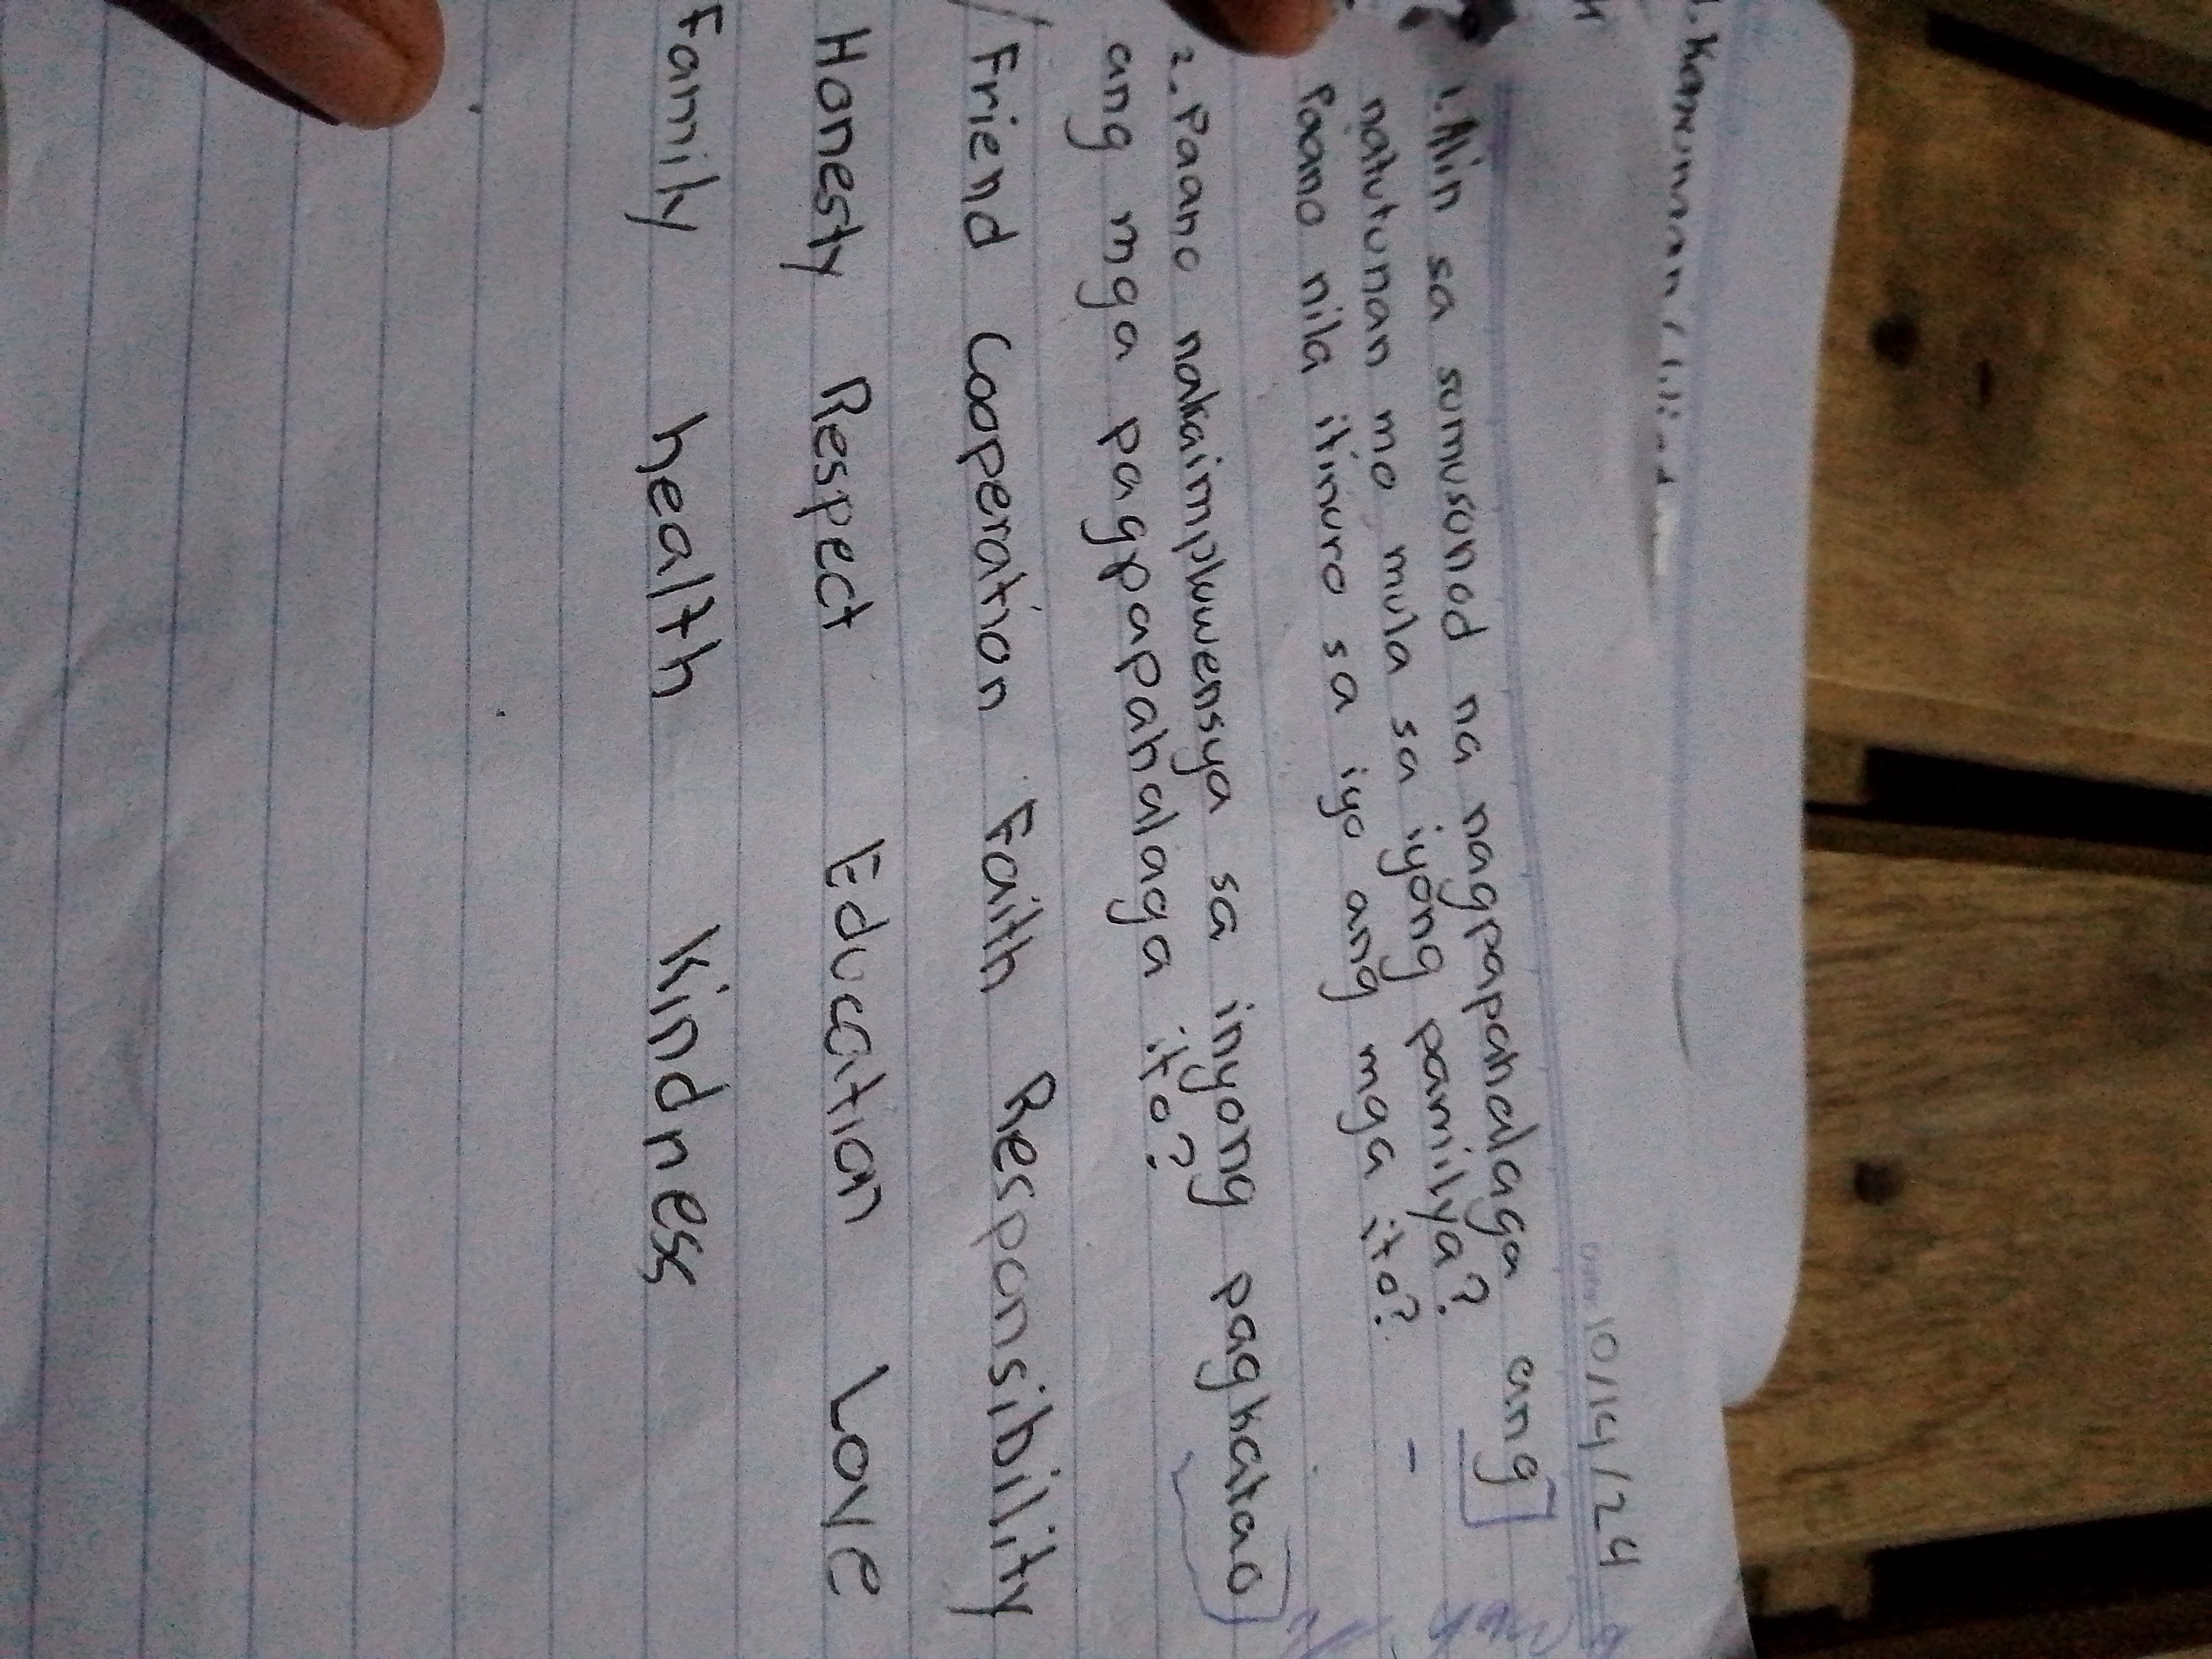 10/14/24
1. Alin sa sumusunod na nagpapahalaga ang
natutunan mo mula sa iyong pamilya?
Paano nila itinuro sa iyo ang mga ito?
2. Paano nakaimpluwensya sa inyong pagkatao
ang mga pagpapahalaga ito?
Friend Cooperation Faith Responsibility
Honesty Respect Education Love
Family health kindness